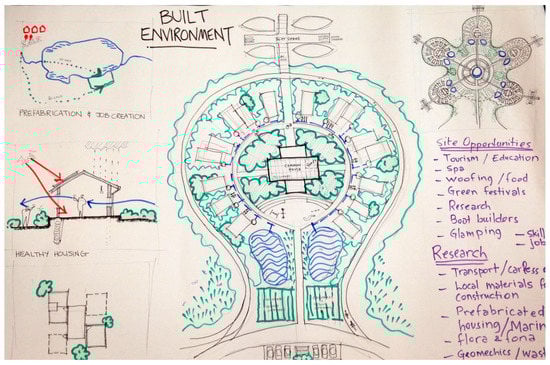 BUILT
ENVIRONMENT
PREFABRICATION & JOB CREATION
HEALTHY HOUSING
BOAT SHARE
COMMON
HOUSE
Site Opportunities
- Tourism / Education
- Spa
- Woofing / food
- Green festivals
- Research
- Boat builders
- Glamping - Skill
- Job
Research
- Transport/carless
- Local materials f
construction
- Prefabricated
housing/Marin
- flora & fona
- Geomechics / wast